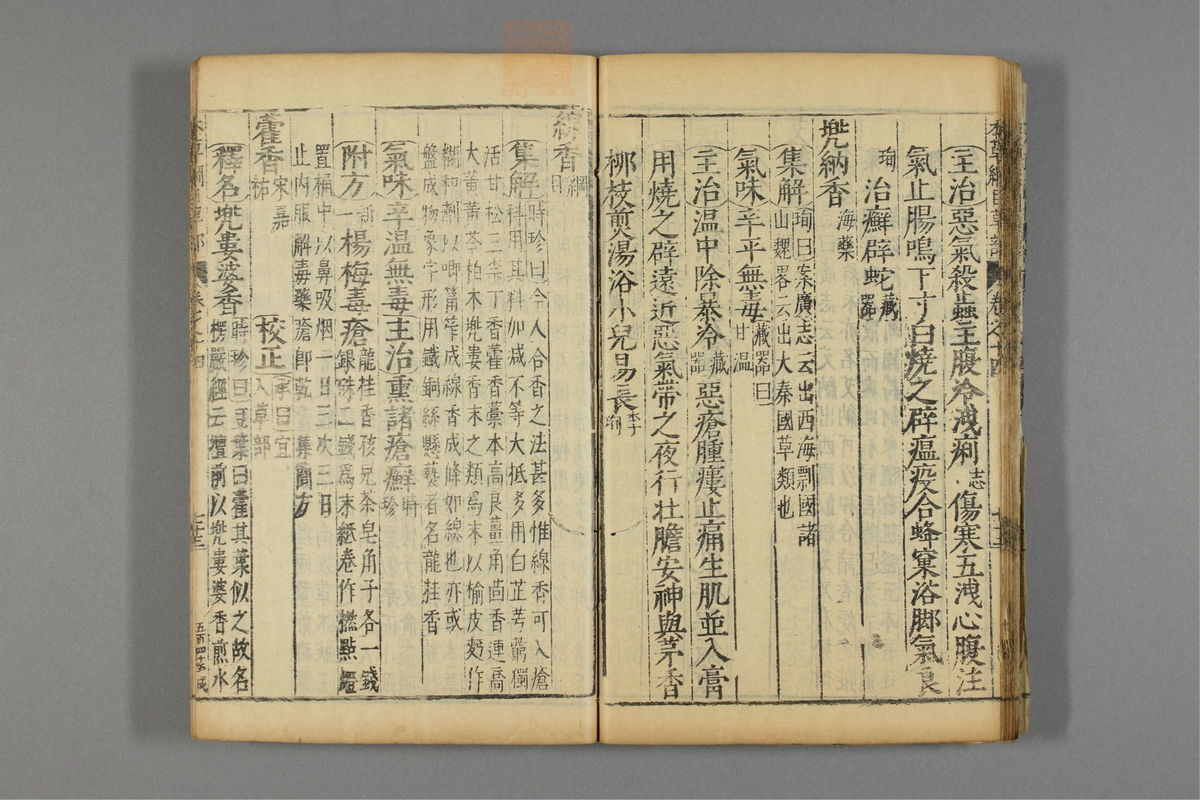 主治惡氣殺蟲主腹冷洩痢志傷寒五洩心腹注
氣止腸鳴下寸白燒之辟瘟疫合蜂窠浴脚氣良
珣治癬辟蛇藏器
兠納香海藥
集解珣曰案廣志云出西海剽國諸
山魏畧云出大秦國草類也
氣味辛平無毒藏器曰
甘溫
主治溫中除暴冷藏器惡瘡腫瘻止痛生肌並入膏
用燒之辟遠近惡氣帶之夜行壯膽安神與茅香
柳枝煎湯浴小兒易長李珣
線香綱目
集解時珍曰今人合香之法甚多惟線香可入瘡
科用其料加减不等大抵多用白芷芎藭獨
活甘松三柰丁香藿香藁本高良薑角茴香連喬
大黃黃芩柏木兠婁香末之類爲末以榆皮麪作
糊和劑以唧筩笮成線香成條如線也亦或
盤成物象字形用鐵銅絲懸爇者名龍挂香
氣味辛溫無毒主治熏諸瘡癬時珍
附方新一楊梅毒瘡龍挂香孩兒茶皂角子各一錢
銀硃二錢爲末紙卷作撚點燈
置桶中以鼻吸烟一日三次三日
止內服解毒藥瘡卽乾集簡方
藿香宋嘉祐
校正承曰宜
入草部
釋名兠婁婆香時珍曰豆葉曰藿其葉似之故名
楞嚴經云壇前以兠婁婆香煎水